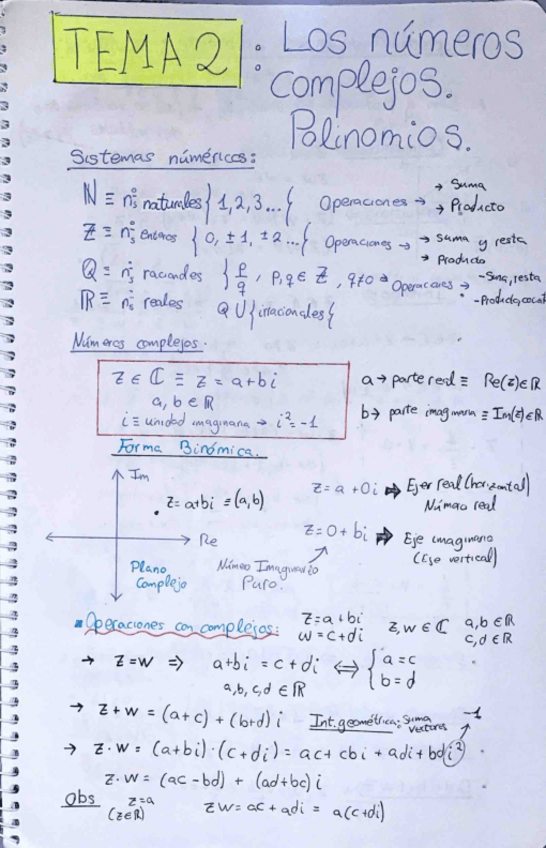 TEMA 2: Los números
complejos.
Polinomios.
Sistemas númericos:
ℕ ≡ nºs naturales {1,2,3...{ Operaciones → → Suma → Producto
ℤ ≡ nºs enteros {0, ±1, ±2...{ Operaciones → → suma y resta → Producto
ℚ ≡ nºs racionales {p/q, p,q ∈ ℤ, q≠0 Operaciones → -Suma, resta -Producto, cocient
ℝ ≡ nºs reales ℚ ∪ {irracionales{
Números complejos.
z ∈ ℂ ≡ z = a+bi
a, b ∈ ℝ
i ≡ unidad imaginaria → i² = -1
a → parte real ≡ Re(z) ∈ ℝ
b → parte imaginaria ≡ Im(z) ∈ ℝ
Forma Binómica.
Im
z = a+bi ≡ (a,b)
Re
Plano
Complejo
z = a + 0i ⇒ Ejer real (horizontal)
Número real
z = 0 + bi ⇒ Eje imaginario
(Eje vertical)
Número Imaginario
Puro.
Operaciones con complejos: z = a + bi
w = c + di
z, w ∈ ℂ a,b ∈ ℝ
c,d ∈ ℝ
→ z = w ⇒ a+bi = c+di ⇔ { a = c
b = d
a,b,c,d ∈ ℝ
→ z+w = (a+c) + (b+d) i Int. geométrica: suma vectores -1
→ z·w = (a+bi)·(c+di) = ac + cbi + adi + bdi²
z·w = (ac-bd) + (ad+bc) i
Obs z=a
(z∈ℝ)
zw = ac + adi = a(c+di)